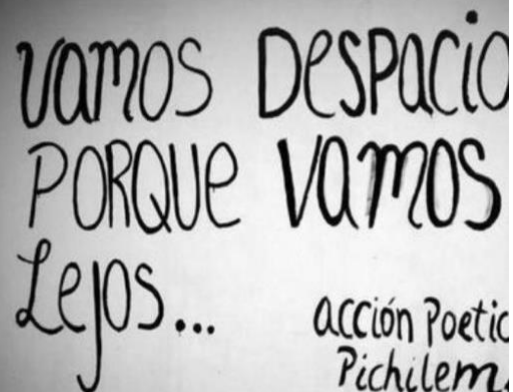 vamos Despacio
PORQUE vamos
Lejos...
acción Poetic
Pichilem